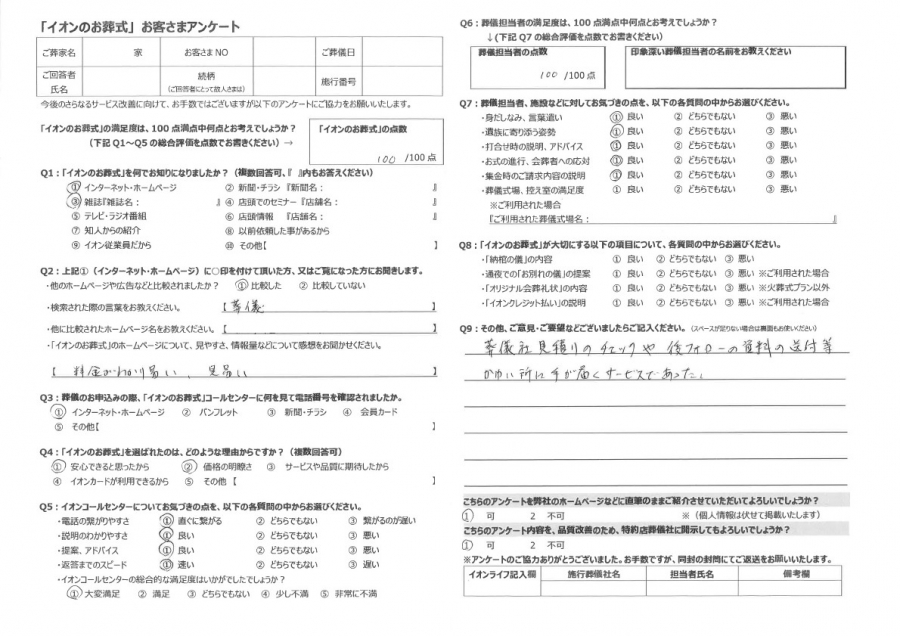 「イオンのお葬式」お客さまアンケート
ご葬家名 家 お客さまNO ご葬儀日
ご回答者氏名 続柄(ご回答者にとって故人さまは) 施行番号
今後のさらなるサービス改善に向けて、お手数ではございますが以下のアンケートにご協力をお願いいたします。
「イオンのお葬式」の満足度は、100点満点中何点とお考えでしょうか？
（下記Q1～Q5の総合評価を点数でお書きください）→
「イオンのお葬式」の点数
100 /100点
Q1：「イオンのお葬式」を何でお知りになりましたか？（複数回答可、『 』内もお答えください）
① インターネット・ホームページ ② 新聞・チラシ『新聞名： 』
③ 雑誌『雑誌名： 』 ④ 店頭でのセミナー『店舗名： 』
⑤ テレビ・ラジオ番組 ⑥ 店頭情報 『店舗名： 』
⑦ 知人からの紹介 ⑧ 以前依頼した事があるから
⑨ イオン従業員だから ⑩ その他【 】
Q2：上記①（インターネット・ホームページ）に○印を付けて頂いた方、又はご覧になった方にお聞きします。
・他のホームページや広告などと比較されましたか？ ① 比較した ② 比較していない
・検索された際の言葉をお教えください。 【 葬儀 】
・他に比較されたホームページ名をお教えください。【 】
・「イオンのお葬式」のホームページについて、見やすさ、情報量などについて感想をお聞かせください。
【 料金がわかり易い、見易い 】
Q3：葬儀のお申込みの際、「イオンのお葬式」コールセンターに何を見て電話番号を確認されましたか。
① インターネット・ホームページ ② パンフレット ③ 新聞・チラシ ④ 会員カード
⑤ その他【 】
Q4：「イオンのお葬式」を選ばれたのは、どのような理由からですか？（複数回答可）
① 安心できると思ったから ② 価格の明瞭さ ③ サービスや品質に期待したから
④ イオンカードが利用できるから ⑤ その他【 】
Q5：イオンコールセンターについてお気づきの点を、以下の各質問の中からお選びください。
・電話の繋がりやすさ ① 直ぐに繋がる ② どちらでもない ③ 繋がるのが遅い
・説明のわかりやすさ ① 良い ② どちらでもない ③ 悪い
・提案、アドバイス ① 良い ② どちらでもない ③ 悪い
・返答までのスピード ① 速い ② どちらでもない ③ 遅い
・イオンコールセンターの総合的な満足度はいかがでしたでしょうか？
① 大変満足 ② 満足 ③ どちらもでない ④ 少し不満 ⑤ 非常に不満
Q6：葬儀担当者の満足度は、100点満点中何点とお考えでしょうか？
↓(下記Q7の総合評価を点数でお書きください)
葬儀担当者の点数
100 /100点
印象深い葬儀担当者の名前をお教えください
Q7：葬儀担当者、施設などに対してお気づきの点を、以下の各質問の中からお選びください。
・身だしなみ、言葉遣い ① 良い ② どちらでもない ③ 悪い
・遺族に寄り添う姿勢 ① 良い ② どちらでもない ③ 悪い
・打合せ時の説明、アドバイス ① 良い ② どちらでもない ③ 悪い
・お式の進行、会葬者への応対 ① 良い ② どちらでもない ③ 悪い
・集金時のご請求内容の説明 ① 良い ② どちらでもない ③ 悪い
・葬儀式場、控え室の満足度 ① 良い ② どちらでもない ③ 悪い
※ご利用された場合
『ご利用された葬儀式場名： 』
Q8：「イオンのお葬式」が大切にする以下の項目について、各質問の中からお選びください。
・「納棺の儀」の内容 ① 良い ② どちらでもない ③ 悪い
・通夜での「お別れの儀」の提案 ① 良い ② どちらでもない ③ 悪い ※ご利用された場合
・「オリジナル会葬礼状」の内容 ① 良い ② どちらでもない ③ 悪い ※火葬式プラン以外
・「イオンクレジット払い」の説明 ① 良い ② どちらでもない ③ 悪い ※ご利用された場合
Q9：その他、ご意見・ご要望などございましたらご記入ください。（スペースが足りない場合は裏面もお使いください）
葬儀社見積りのチェックや後フォローの資料の送付等
かゆい所に手が届くサービスであった。
こちらのアンケートを弊社のホームページなどに直筆のままご紹介させていただいてよろしいでしょうか？
① 可 2 不可 ※（個人情報は伏せて掲載いたします）
こちらのアンケート内容を、品質改善のため、特約店葬儀社に開示してもよろしいでしょうか？
① 可 2 不可
※アンケートのご協力ありがとうございました。お手数ですが、同封の封筒にてご返送をお願いいたします。
イオンライフ記入欄 施行葬儀社名 担当者氏名 備考欄